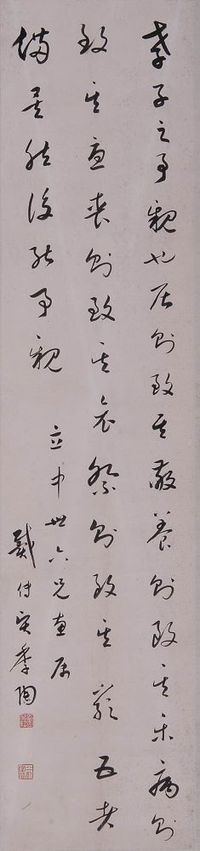 孝子之事親也居則致其敬養則致其樂病則
致其憂喪則致其哀祭則致其嚴五者
備矣然後能事親
立中世六兄惠屬
戴傳賢季陶